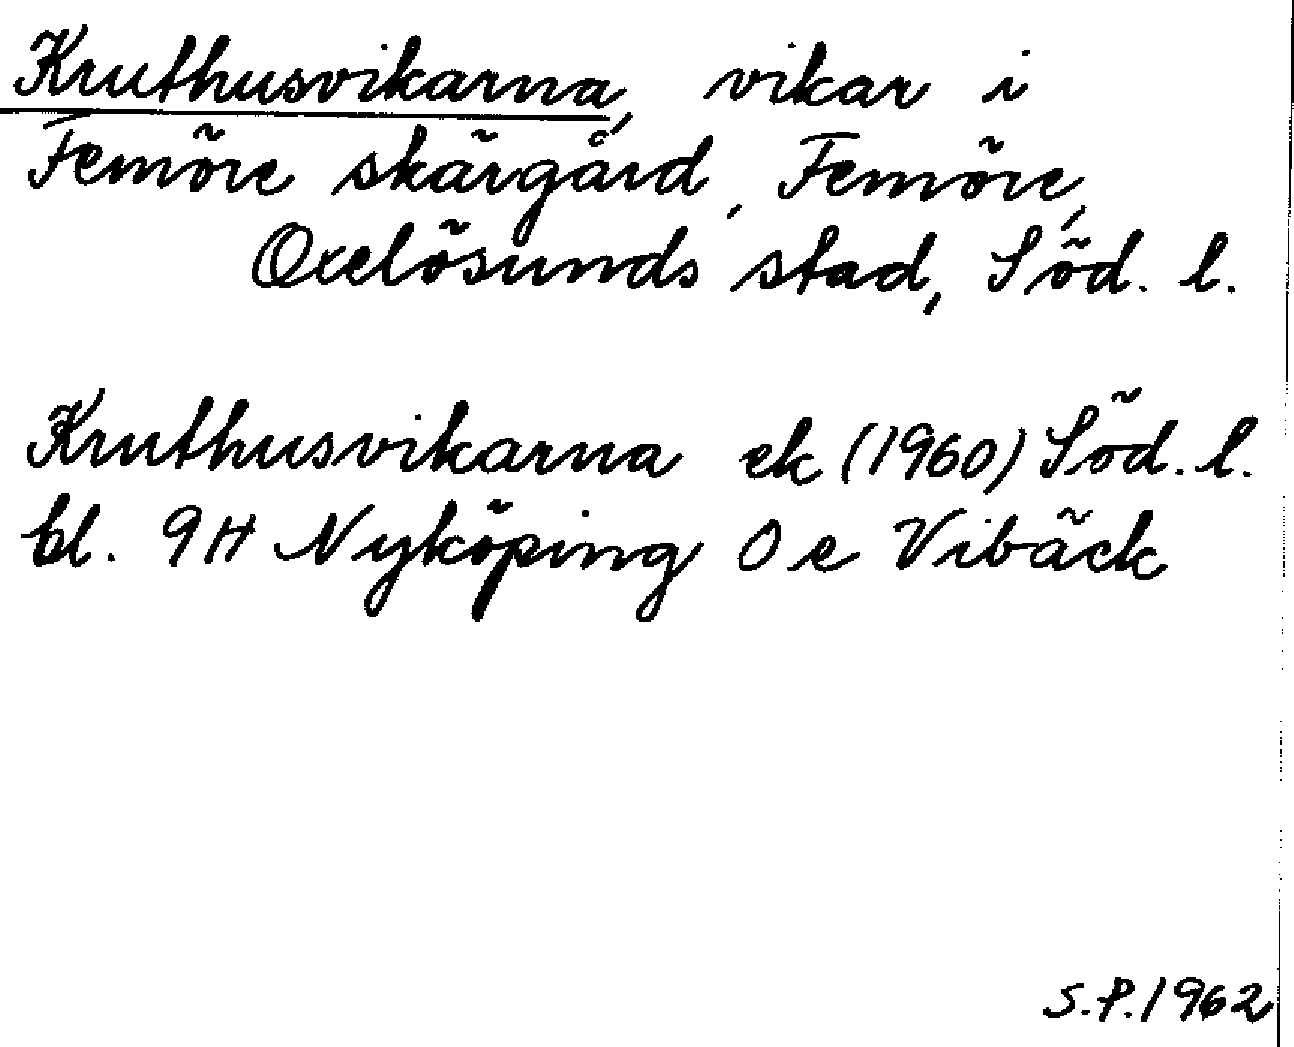 Kruthusvikarna, vikar i
Femöre skärgård, Femöre,
Oxelösunds stad, Söd. l.
Kruthusvikarna ek (1960) Söd. l.
bl. 9H Nyköping 0 e Vibäck
S.P.1962